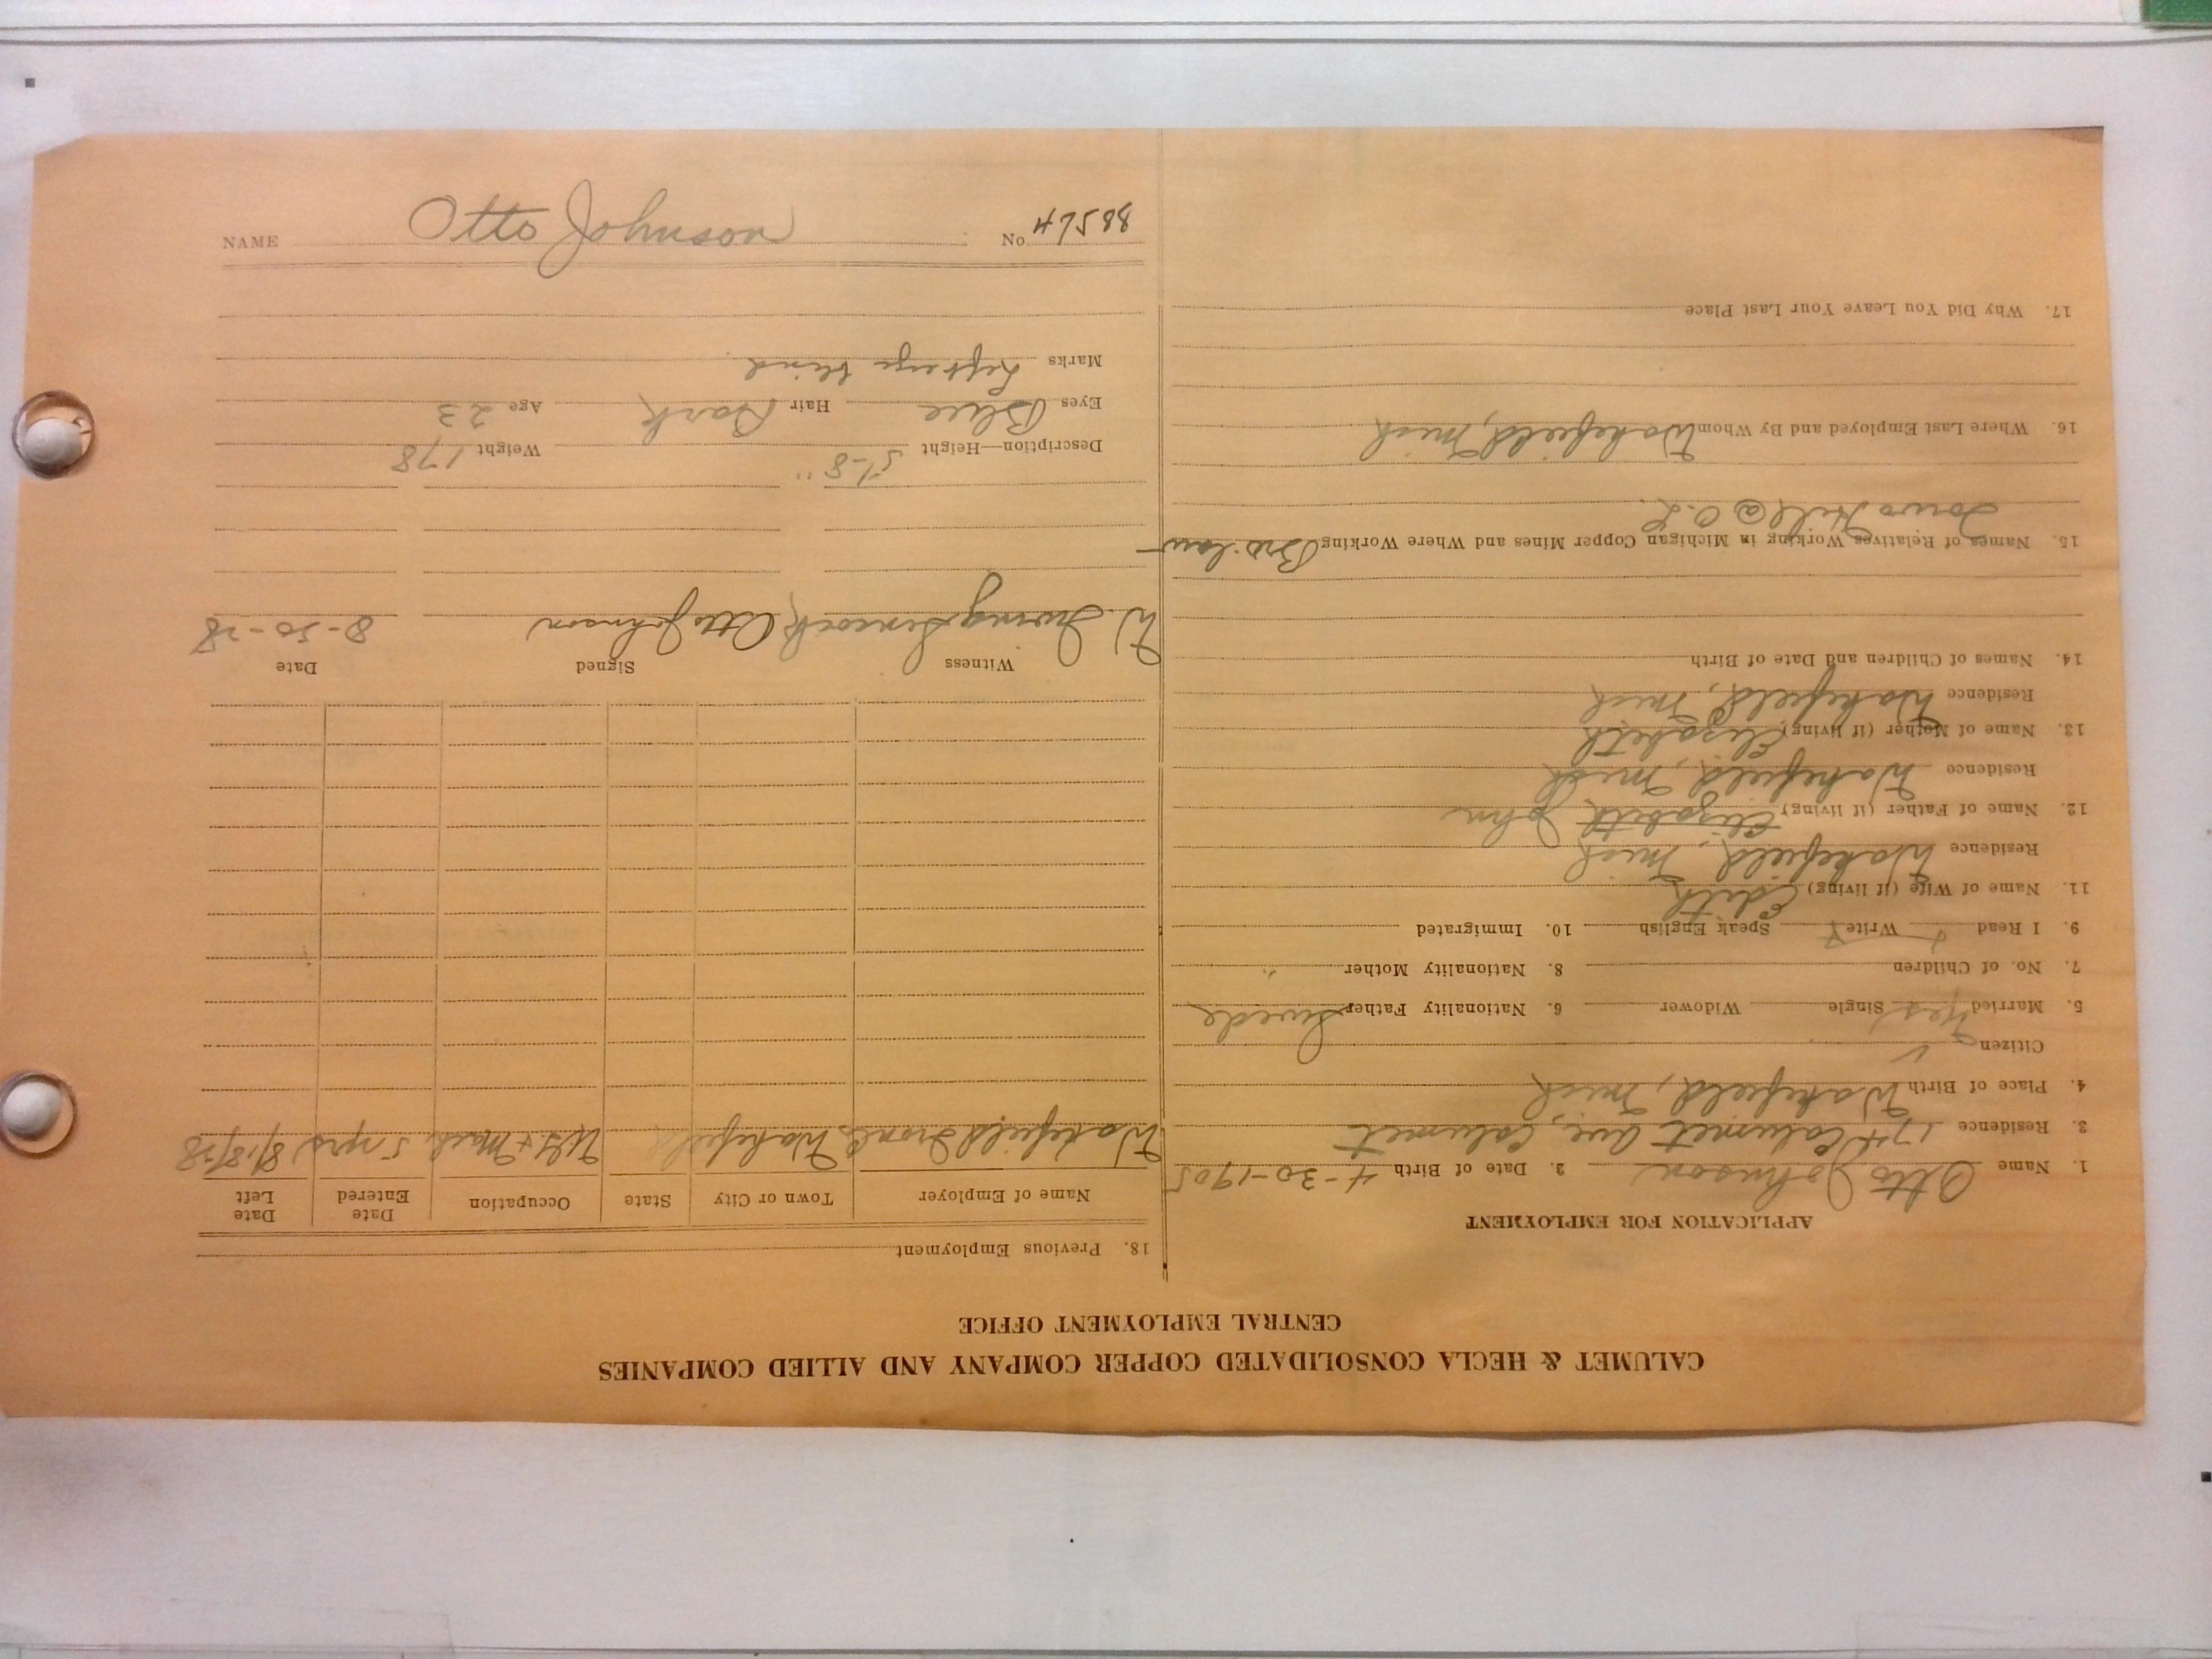 CALUMET & HECLA CONSOLIDATED COPPER COMPANY AND ALLIED COMPANIES
CENTRAL EMPLOYMENT OFFICE
APPLICATION FOR EMPLOYMENT
1. Name Otto Johnson 2. Date of Birth 4-30-1905
3. Residence Calumet Ave, Calumet
4. Place of Birth Wakefield, Mich
Citizen
5. Married Yes Single Widower 6. Nationality Father Swede
7. No. of Children 8. Nationality Mother "
9. I Read Write Speak English 10. Immigrated
11. Name of Wife (if living) Edith
Residence Wakefield, Mich
12. Name of Father (if living) Elizabeth John
Residence Wakefield, Mich
13. Name of Mother (if living) Elizabeth
Residence Wakefield, Mich
14. Names of Children and Date of Birth
15. Names of Relatives Working in Michigan Copper Mines and Where Working Bro. law
@ O.L.
16. Where Last Employed and By Whom Wakefield, Mich
17. Why Did You Leave Your Last Place
18. Previous Employment
Name of Employer Town or City State Occupation Date Entered Date Left
Wakefield Iron Co Wakefield 5 yrs 8/18/28
Witness Signed Date
W. Otto Johnson 8-30-28
Description—Height 5'-8" Weight 178
Eyes Blue Hair Dark Age 23
Marks Left eye blind
NAME Otto Johnson
No. 47588